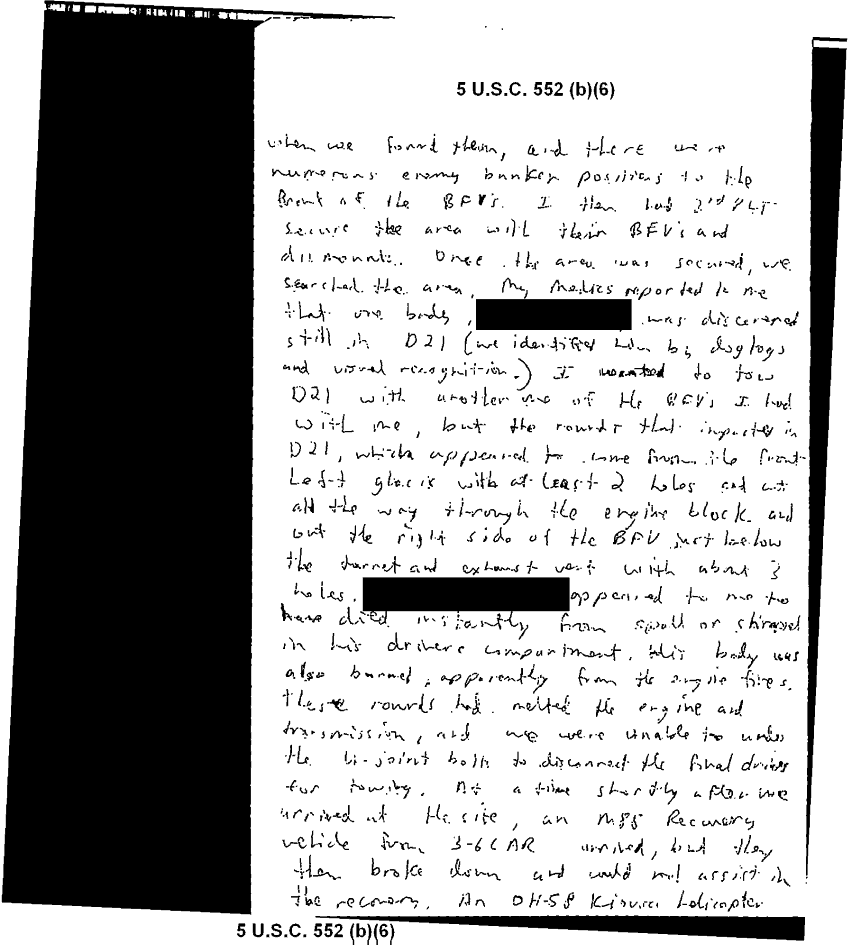 5 U.S.C. 552 (b)(6)
when we found them, and there were
numerous enemy bunker positions to the
front of the BFV's. I then had 2nd PLT
secure the area with their BFV's and
dismounts. Once the area was secured, we
searched the area. My Medics reported to me
that one body, was discovered
still in D21 (we identified him by dogtags
and visual recognition.) I wanted to tow
D21 with another one of the BFV's I had
with me, but the rounds that impacted in
D21, which appeared to come from the front
Left glacis with at least 2 holes and cut
all the way through the engine block and
out the right side of the BFV just below
the turret and exhaust vent with about 3
holes. appeared to me to
have died instantly from spall or shrapnel
in his drivers compartment. His body was
also burned, apparently from the engine fires.
These rounds had melted the engine and
transmission, and we were unable to undo
the U-joint bolts to disconnect the final drives
for towing. At a time shortly after we
arrived at the site, an M88 Recovery
vehicle from 3-6 arrived, but they
then broke down and could not assist in
the recovery. An OH-58 Kiowa helicopter
5 U.S.C. 552 (b)(6)